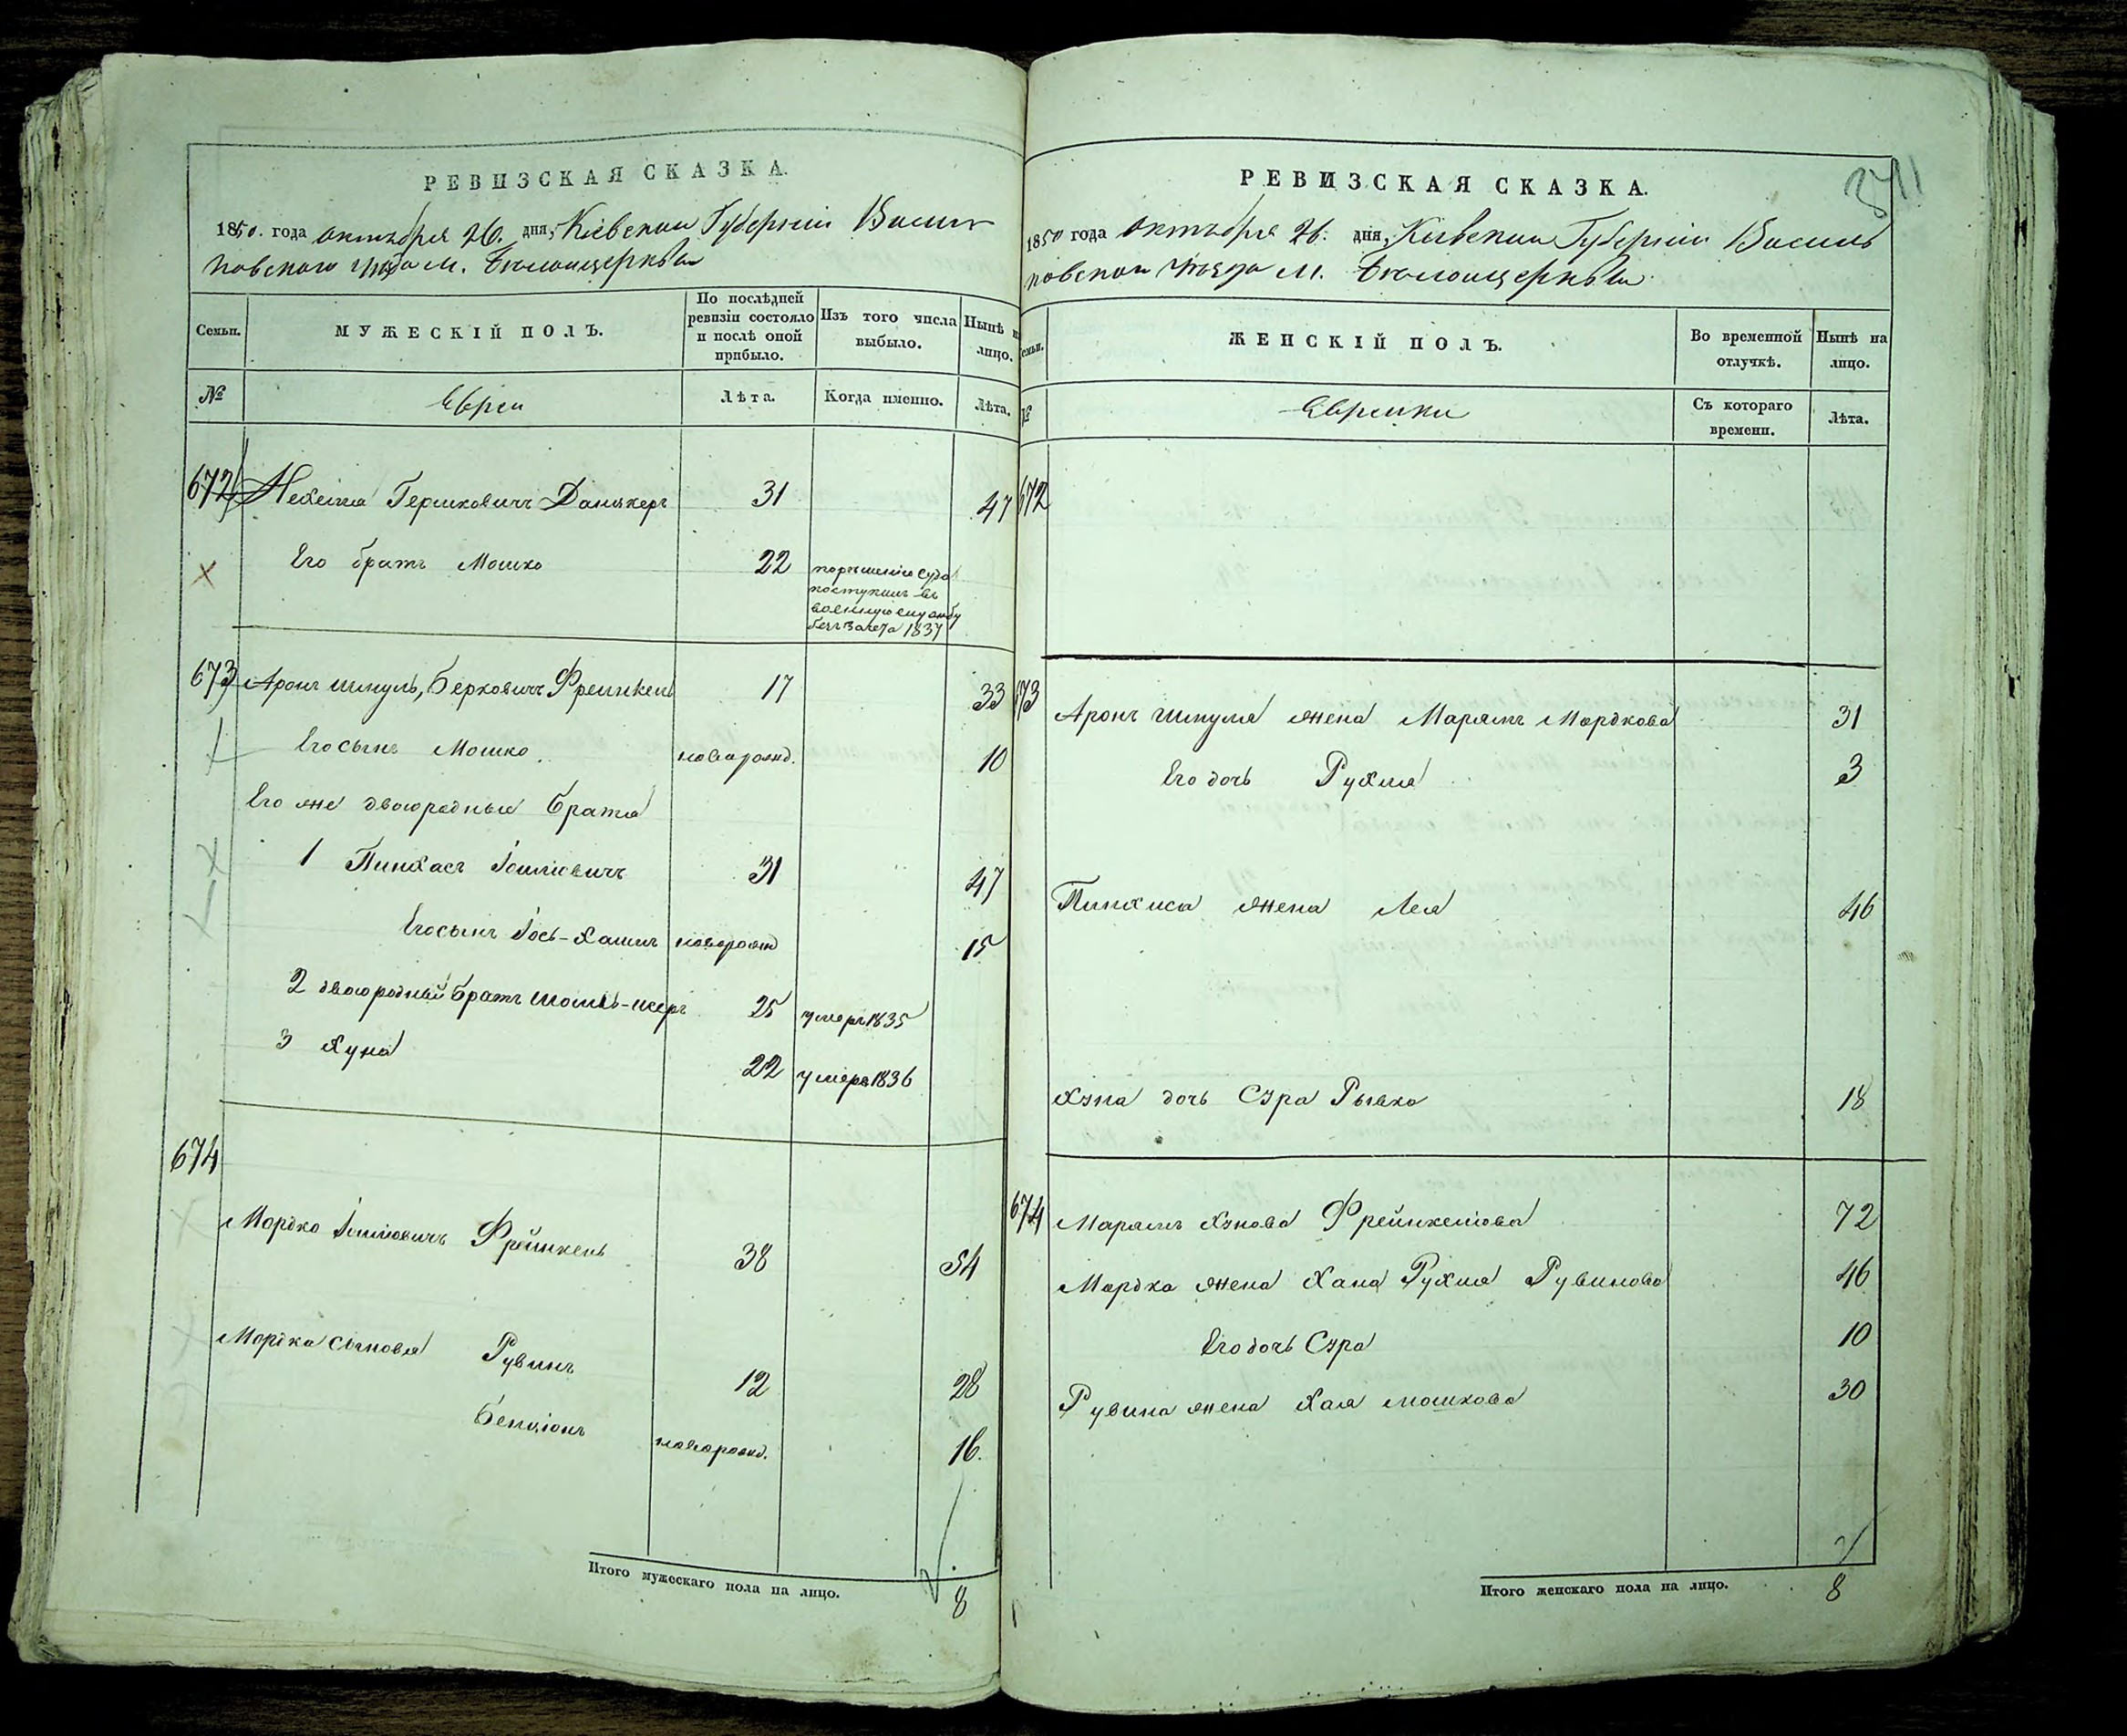 РЕВИЗСКАЯ СКАЗКА.
1850. года октября 26. дня, Кіевской Губерніи Василь
ковского уѣзда м. Бѣлойцеркви
Семьи.
МУЖЕСКІЙ ПОЛЪ.
По послѣдней
ревизіи состояло
и послѣ оной
прибыло.
Изъ того числа
выбыло.
Нынѣ на
лицо.
№
Евреи
Лѣта.
Когда именно.
Лѣта.
672 Гершковичъ 31 47
Его братъ Мошко 22 по рѣшенію суда
поступилъ въ
военную службу
безъ зачета 1837
673 Аронъ Шмуль, Берковичъ Френкель 17 33
Его сынъ Мошко. новорожд. 10
Его же двоюродные братья
1 Пинхасъ Іоиліовичъ 31 47
Его сынъ Іось-Хаимъ новорожд 15
2 двоюродный братъ 25 умеръ 1835
3 Хуна 22 умеръ 1836
674
Мордко Іоиліовичъ Фрейнкель 38 54
Мордка сыновья Рувинъ 12 28
Бенціонъ новорожд. 16.
Итого мужескаго пола на лицо. 8
РЕВИЗСКАЯ СКАЗКА.
1850 года октября 26. дня, Кіевской Губерніи Василь
ковской уѣзда м. Бѣлойцеркви
Семьи.
ЖЕНСКІЙ ПОЛЪ.
Во временной
отлучкѣ.
Нынѣ на
лицо.
№
Еврейки
Съ котораго
времени.
Лѣта.
672
673 Аронъ Шмуля жена Марямъ Мордкова 31
Его дочь Рухля 3
Пинхиса жена Лея 46
Хуна дочь Сура Рывка 18
674 Марямъ Хунова Фрейнкелова 72
Мордка жена Хана Рухля Рувинова 46
Его дочь Сура 10
Рувина жена Хая Мошкова 30
Итого женскаго пола на лицо. 8